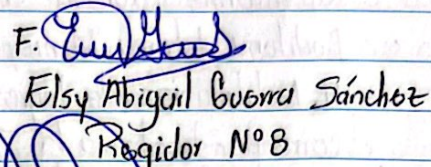 F.
Elsy Abigail Guerra Sánchez
Regidor Nº8